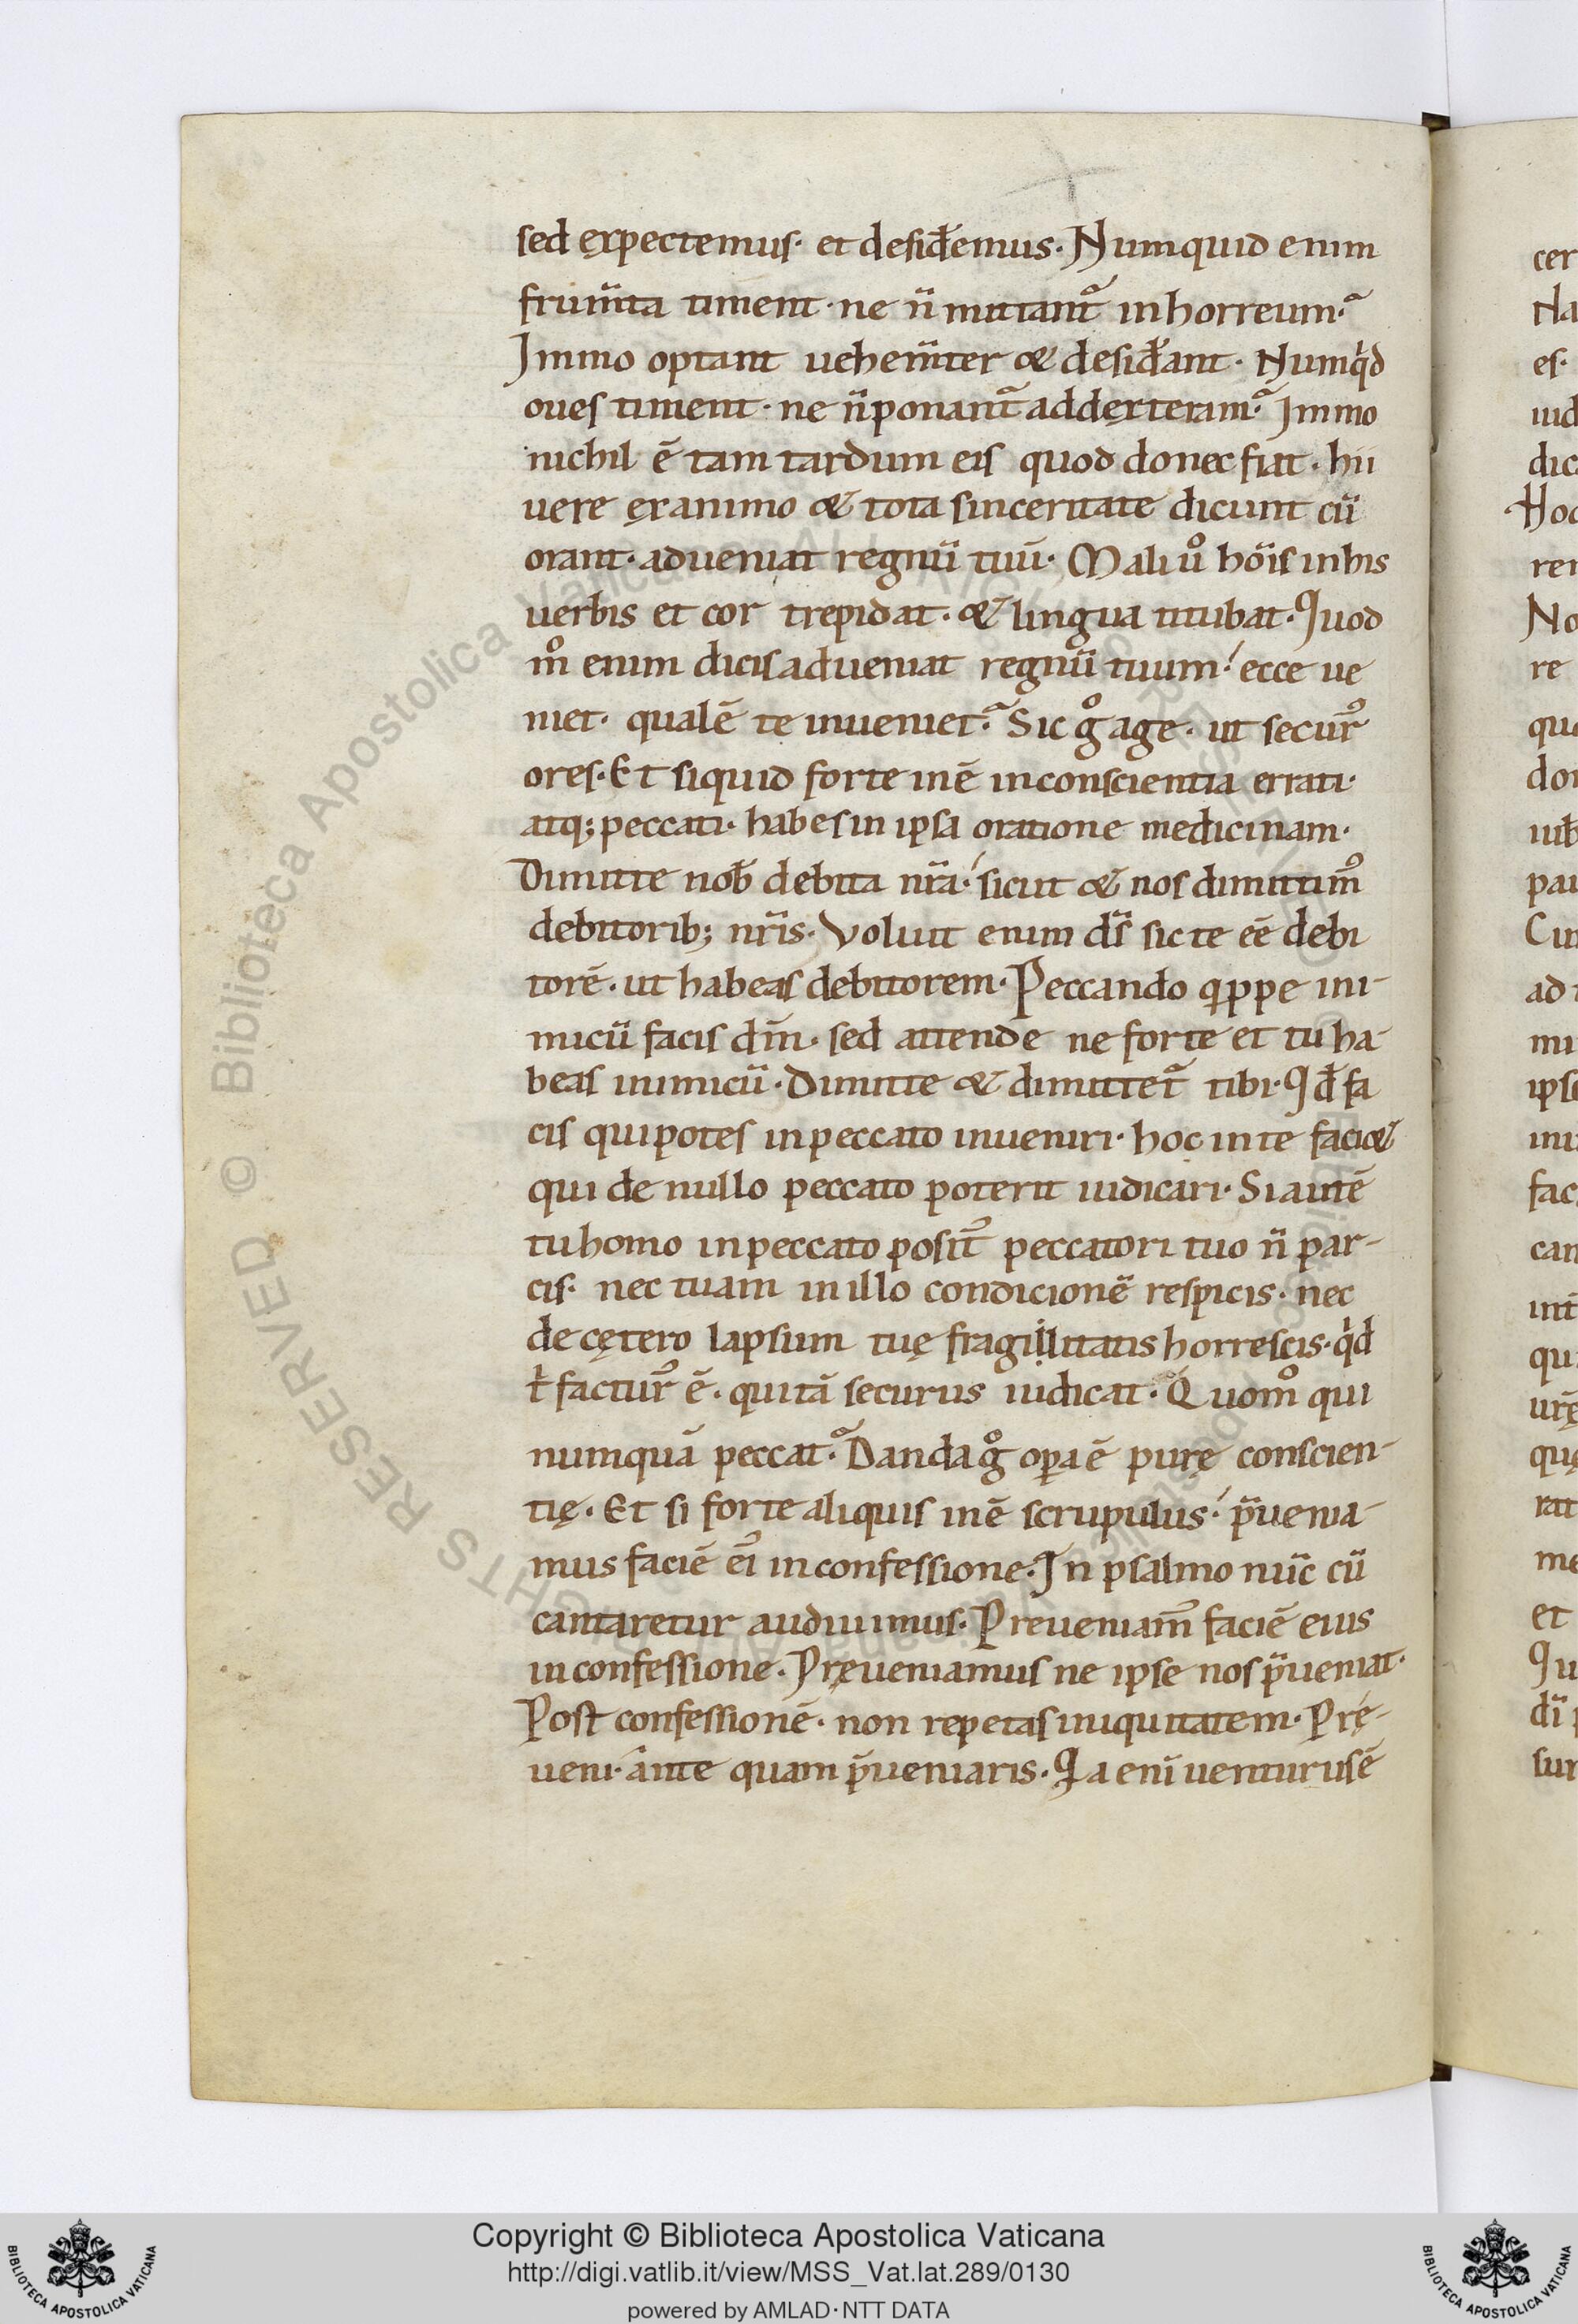 sed ęxpectemus· et desid̄emus· Numquid enim
frum̄ta timent· ne n̄ mittant᷑ inhorreum·
Immo optant uehem̄ter & desid̄ant· Numqͥd
oues timent· ne n̄ ponant᷑ addęxteram· Immo
nichil ē tam tardum eis quod donec fiat· hii
uere ęxanimo & tota sinceritate dicunt cū
orant· adueniat regnū tuū· Mali uͦ hōīs inhis
uerbis et cor trepidat· & lingua titubat· Quod
mͦ enim dicis adueniat regnū tuum· ecce ue
niet· qualē te inueniet· Sic gͦ age· ut secur᷒
ores· Et siquid forte inē inconscientia errati·
atq; peccati· habes in ipsa oratione medicinam·
Dimitte nob̄ debita nr̄a· sicut & nos dimittim᷒
debitorib; nr̄is· Voluit enim ds̄ sic te eē debi
torē· ut habeas debitorem· Peccando qͥppe ini-
micū facis dm̄· sed attende ne forte et tu ha-
beas inimicū· Dimitte & dimittet᷑ tibi· Qd̄ fa
cis qui potes inpeccato inueniri· hoc inte faci&
qui de nullo peccato poterit iudicari· Si autē
tu homo inpeccato posit᷒ peccatori tuo n̄ par-
cis· nec tuam in illo condicionē respicis· nec
de cętero lapsum tuę fragillitatis horrescis· qͥd
tͥ factur᷒ ē· qui tā securus iudicat· Quomͦ qui
numquā peccat· Danda gͦ oꝑa ē purę conscien-
tię· Et si forte aliquis inē scrupulus· p̄uenia-
mus faciē ei᷒ inconfessione· In psalmo nūc cū
cantaretur audiuimus· Preueniam᷒ faciē eius
inconfessione· Pręueniamus ne ipse nos p̄ueniat·
Post confessionē· non repetas iniquitatem· Prę-
ueni· ante quam p̄ueniaris· Qͥa enī uenturusē
cer
Na
es·
iud
dic
Hoc
rer
No
re
qua
don
iub
pau
Cu
ad
mi
ipse
ini
fac
can
int̄
qui
urę
quę
rat
me
et
Qu
dī
sur
© Biblioteca Apostolica Vaticana
ALL RIGHTS RESERVED
Copyright © Biblioteca Apostolica Vaticana
http://digi.vatlib.it/view/MSS_Vat.lat.289/0130
powered by AMLAD·NTT DATA
BIBLIOTECA APOSTOLICA VATICANA
BIBLIOTECA APOSTOLICA VATICANA